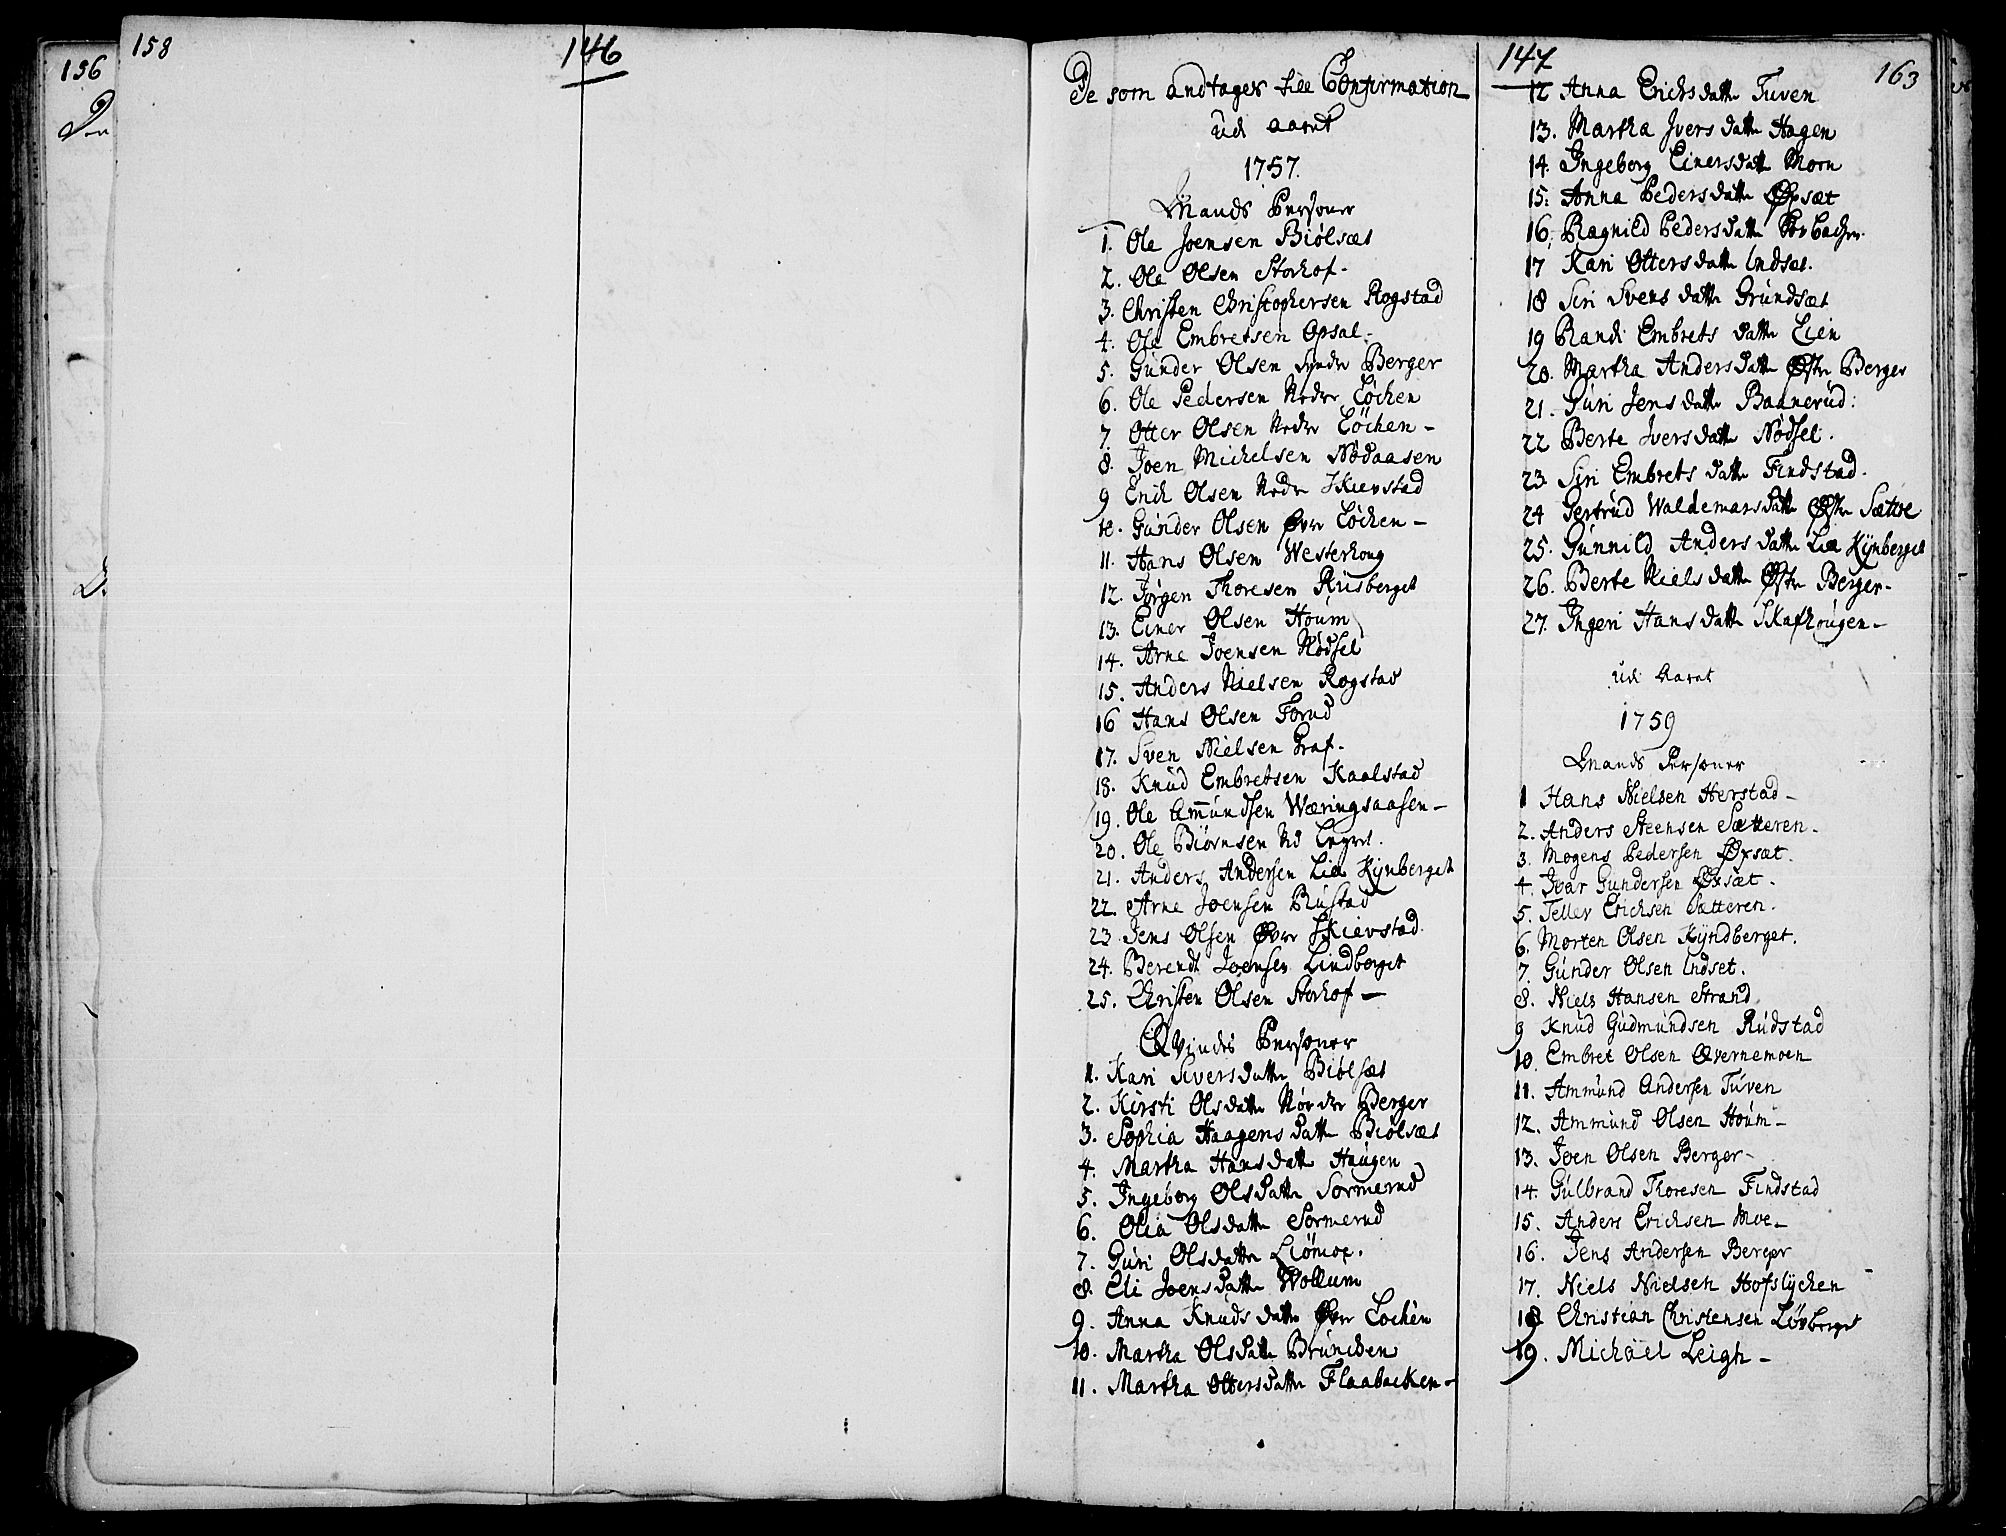 156
158
146
De som andtages till Confirmation
udi aaret
1757.
Mands Personer
1. Ole Joensen Biølsæt
2. Ole Olsen Storhof-
3. Christen Christophersen Rogstad
4. Ole Embretsen Opsal-
5. Gunder Olsen Syndre Berger
6. Ole Pedersen Nedre Løchen
7. Otter Olsen Nedre Løchen-
8. Joen Michelsen Nødaasen
9 Erich Olsen Nedre Skievstad
10. Gunder Olsen Øvre Løchen-
11. Hans Olsen Westerhoug
12. Jørgen Thoresen Riisberget
13. Einer Olsen Houm
14. Arne Joensen Nødsel
15. Anders Nielsen Rogstad
16 Hans Olsen Forud
17. Sven Nielsen Graf-
18. Knud Embretsen Kaalstad
19. Ole Amundsen Wæringsaasen-
20. Ole Biørnsen
21. Anders Andersen Lia Kynberget
22. Arne Joensen Rustad
23 Jens Olsen Øvre Skievstad.
24. Berendt Joensen Lindberget
25. Christen Olsen Storhof-
Qvindes Personer
1. Kari Siversdatter Biølsæt
2. Kirsti Olsdatter Nordre Berger
3. Sophia Haagensdatter Biølsæt
4. Martha Hansdatter Haugen
5. Ingeborg Olsdatter Sormerud
6. Olia Olsdatter Sormerud
7. Guri Olsdatter Liømoe.
8. Eli Joensdatter Wollum
9. Anna Knudsdatter Øvre Lochen
10. Martha Olsdatter Bruniden
11. Martha Ottersdatter Flaabacken-
147
163
12 Anna Erichsdatter Tuven
13. Martha Iversdatter Hagen
14. Ingeborg Einersdatter Morn
15. Anna Pedersdatter Øxsæt
16. Ragnild Pedersdatter
17 Kari Ottersdatter Indset.
18 Siri Svensdatter Grundsæt
19 Randi Embretsdatter Lien
20. Martha Andersdatter Østre Berger
21. Guri Jensdatter Baanerud:
22 Berte Iversdatter Nødsel.
23. Siri Embretsdatter Findstad.
24 Gertrud Waldemarsdatter Østre Sætre
25. Gunnild Andersdatter Lia Kynberget
26. Berte Nielsdatter Østre Berger-
27. Ingeri Hansdatter Skafhougen-
udi Aaret
1759
Mands Personer
1 Hans Nielsen Herstad-
2. Anders Steensen Sætteren-
3. Mogens Pedersen Øxsæt.
4. Ivar Gundersen Øxsæt.
5. Tellev Erichsen Sætteren.
6. Morten Olsen Kyndberget.
7. Gunder Olsen Indset.
8. Niels Hansen Strand
9 Knud Gudmundsen Rudstad
10. Embret Olsen Øvernemoen
11. Ammund Andersen Tuven
12. Ammund Olsen Houm-
13. Joen Olsen Berger-
14. Gulbrand Thoresen Findstad
15. Anders Erichsen Moe-
16. Jens Andersen Berger
17. Niels Nielsen Hofslychen
18 Christian Christensen Løvberget
19. Michael Leigh-